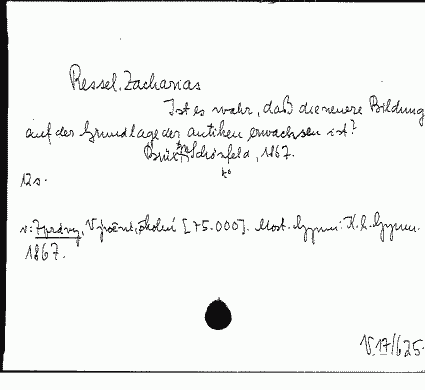 Ressel, Zacharias
Ist es wahr, daß die neuere Bildung
auf der Grundlage der antiken erwachsen ist?
Brüx, Schönfeld, 1867.
12 s.
v: Zprávy, Výroční, školní [75.000]. Most. Gymn: K. k. Gymn.
1867.
V 17/625